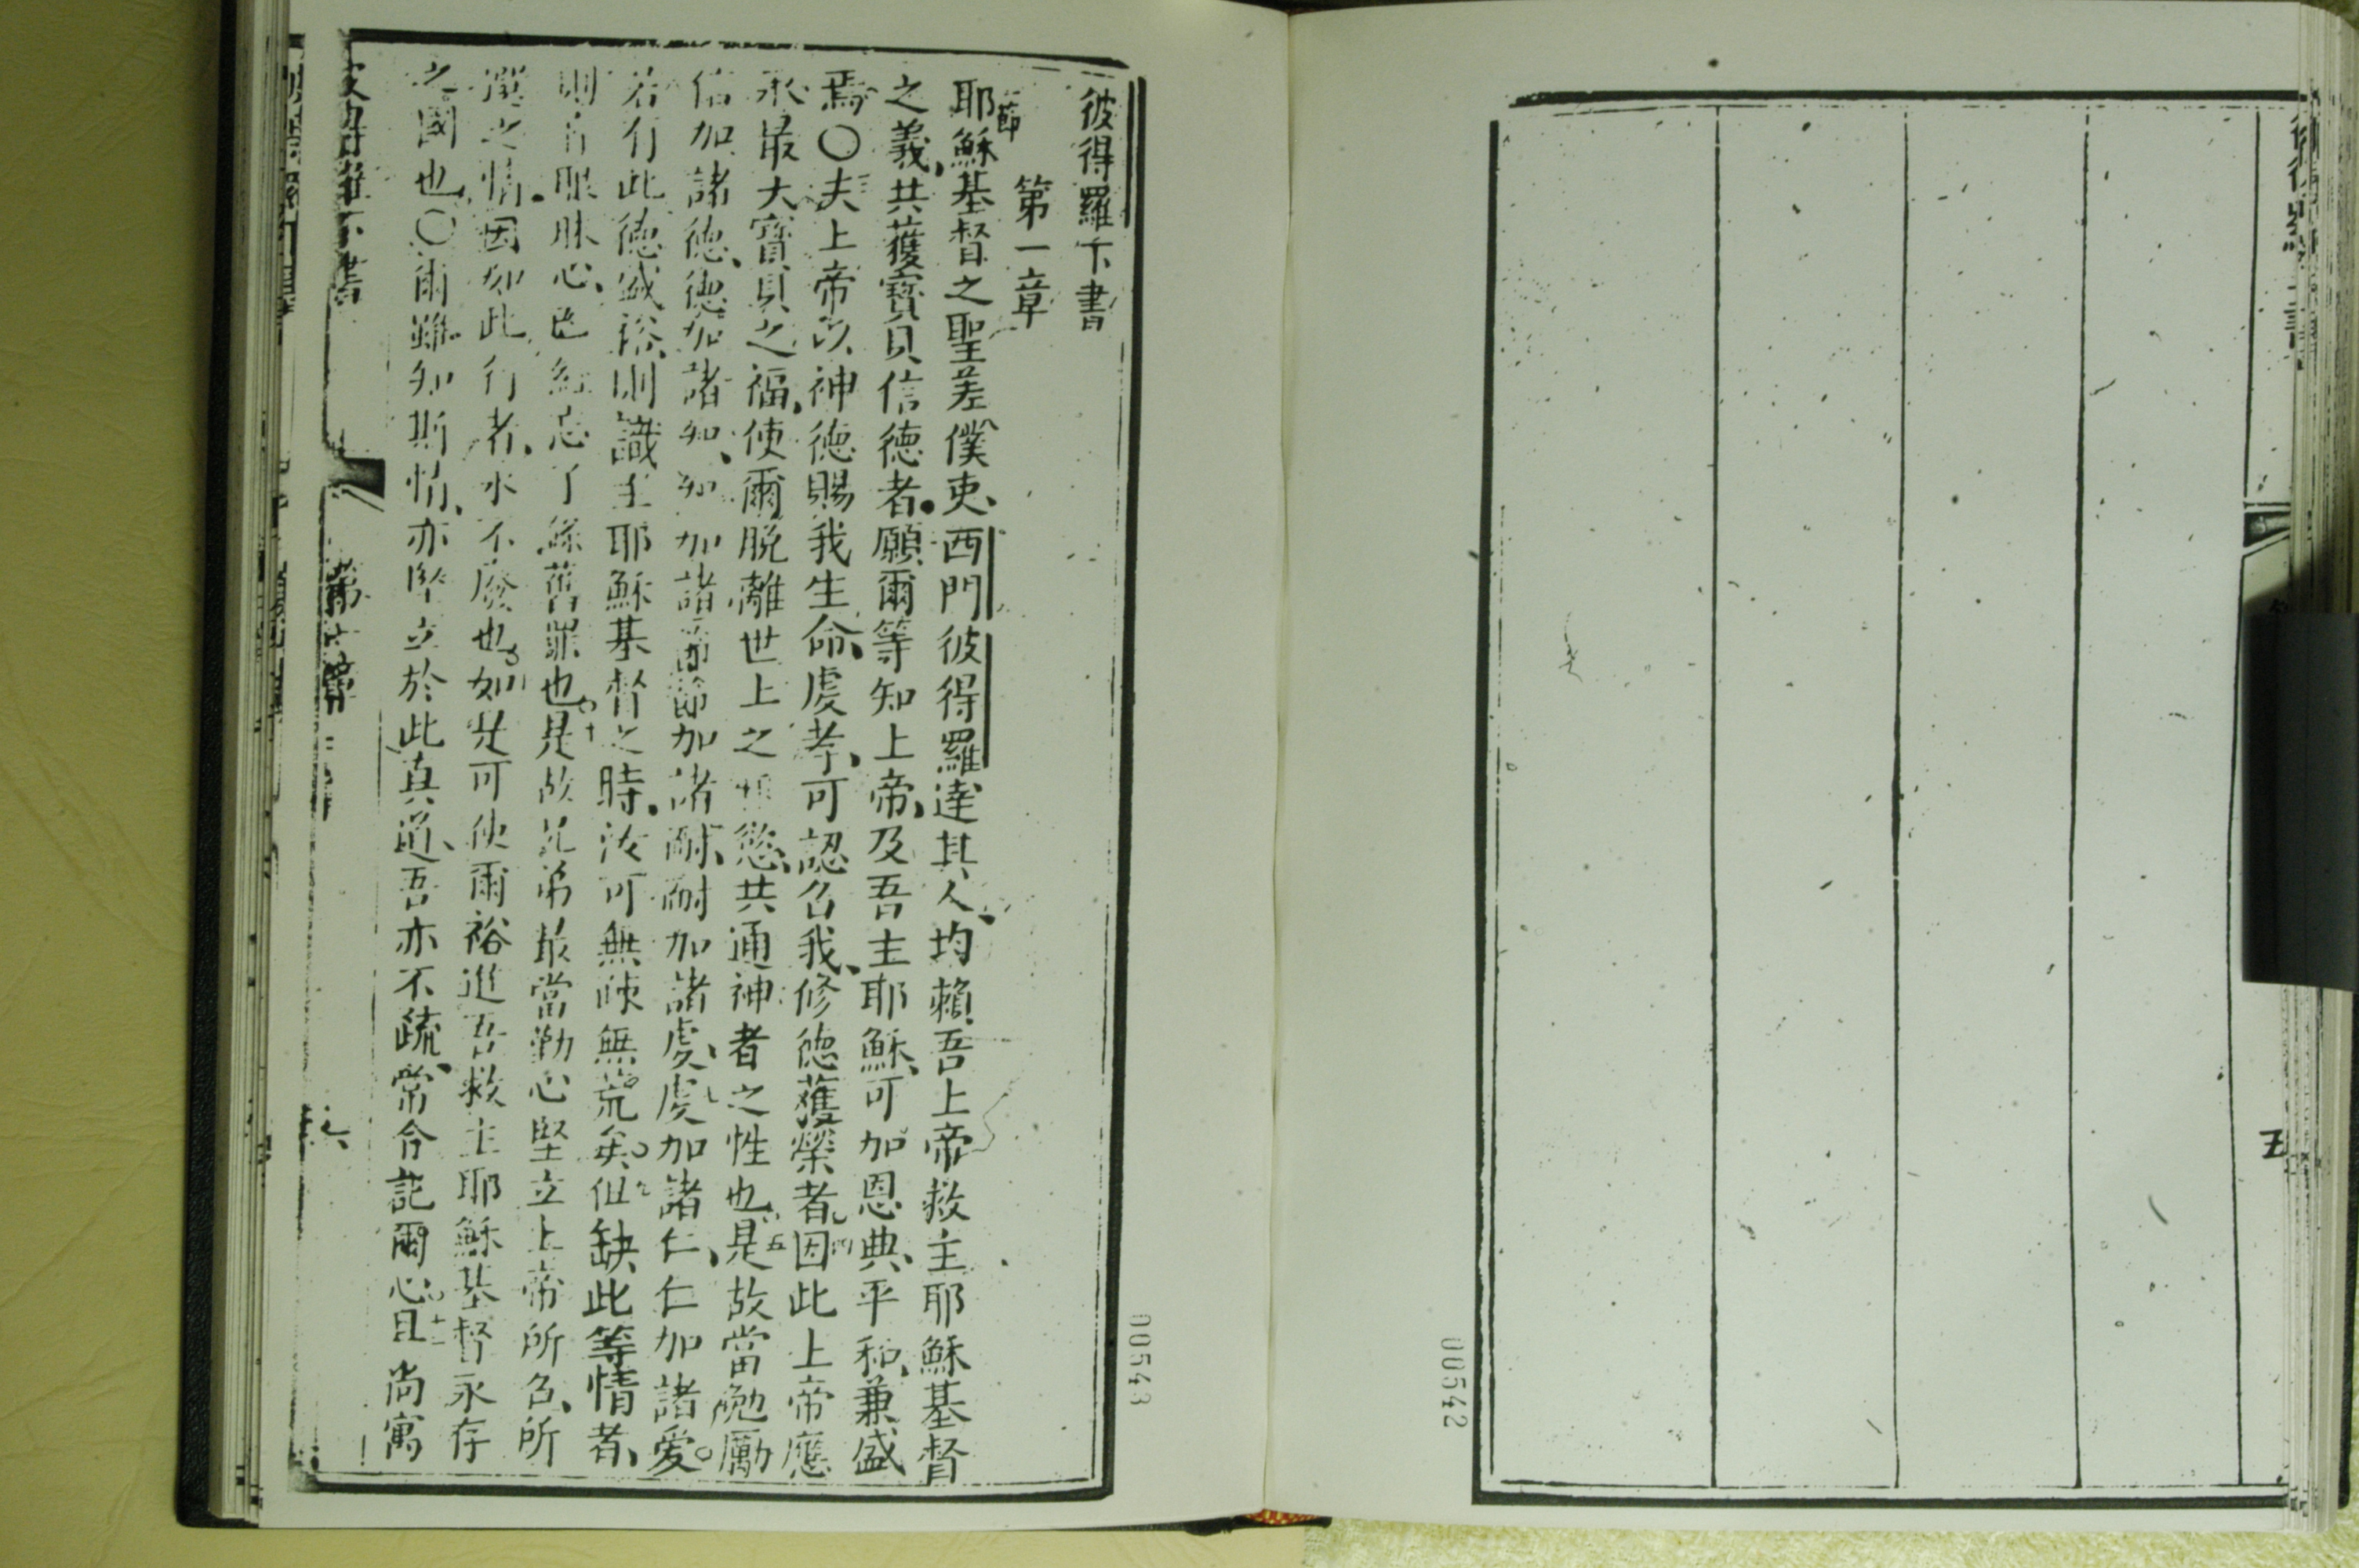 彼得羅下書
第一章
節
耶穌基督之聖差僕吏、西門彼得羅達其人、均賴吾上帝救主耶穌基督
之義、共獲寶貝信德者。願爾等知上帝、及吾主耶穌、可加恩典、平和、兼盛
焉〇夫上帝以神德賜我生命、虔孝、可認召我、修德獲榮者。四因此上帝應
承最大寶貝之福、使爾脫離世上之慾、共通神者之性也。五是故當勉勵
信加諸德、德加諸知、知加諸節、節加諸耐、耐加諸虔、虔加諸仁、仁加諸愛。
若有此德盛裕、則識主耶穌基督之時、汝可無疎無荒矣。但缺此等情者、
則盲眼昧心、忘了舊罪也。十是故兄弟最當勤心堅立上帝所召、所
選之情。因如此行者、永不廢也。如是可使爾裕進吾救主耶穌基督永存
之國也。〇爾雖知斯情、亦堅立於此真道、吾亦不疏、常令記爾心。且尚寓
彼得羅下書
第一章
六
五
00543
00542